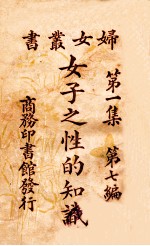 婦女叢書
第一集 第七編
女子之性的知識
商務印書館發行